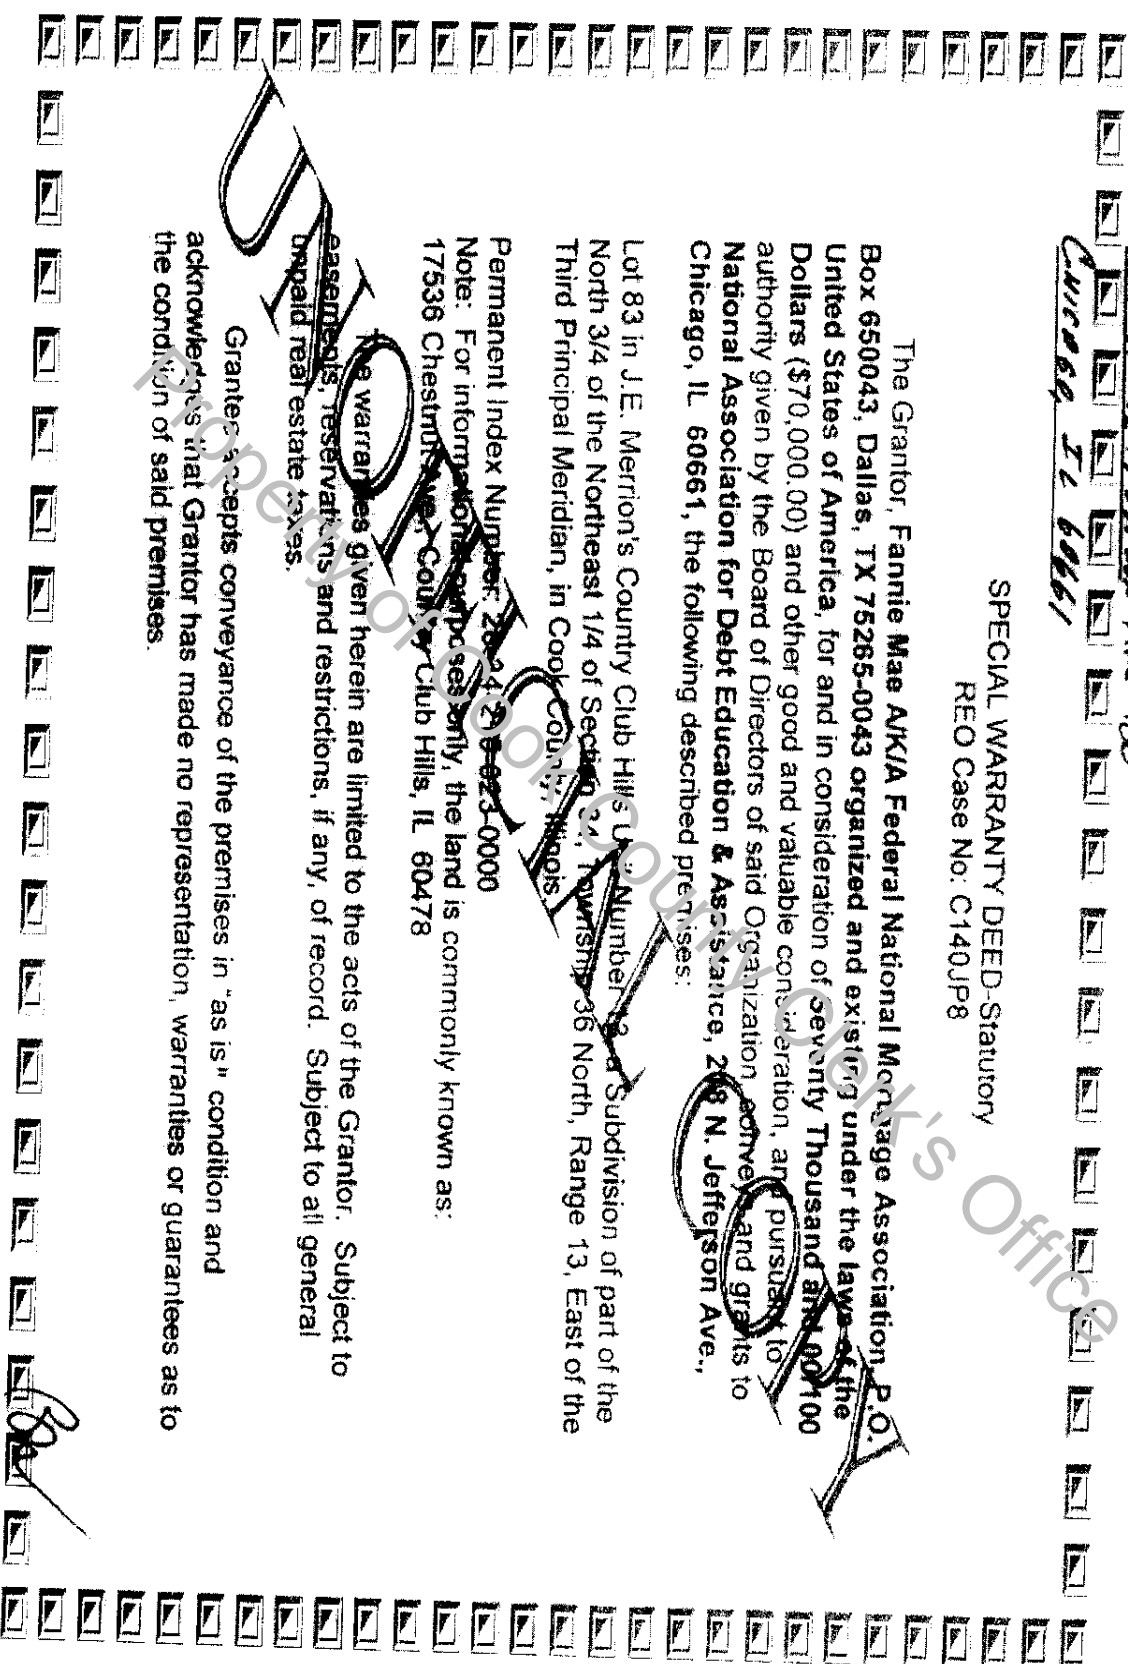 CHICAGO, IL 60661
SPECIAL WARRANTY DEED-Statutory
REO Case No: C140JP8
The Grantor, Fannie Mae A/K/A Federal National Mortgage Association, P.O.
Box 650043, Dallas, TX 75265-0043 organized and existing under the laws of the
United States of America, for and in consideration of Seventy Thousand and 00/100
Dollars ($70,000.00) and other good and valuable consideration, and pursuant to
authority given by the Board of Directors of said Organization, conveys and grants to
National Association for Debt Education & Assistance, N. Jefferson Ave.,
Chicago, IL 60661, the following described premises:
Lot 83 in J.E. Merrion's Country Club Hills Number a Subdivision of part of the
North 3/4 of the Northeast 1/4 of Section 34, Township 36 North, Range 13, East of the
Third Principal Meridian, in Cook County, Illinois
Permanent Index Number:
Note: For informational purposes only, the land is commonly known as:
17536 Chestnut Ave, Country Club Hills, IL 60478
The warranties given herein are limited to the acts of the Grantor. Subject to
easements, reservations and restrictions, if any, of record. Subject to all general
unpaid real estate taxes.
Grantee accepts conveyance of the premises in "as is" condition and
acknowledges that Grantor has made no representation, warranties or guarantees as to
the condition of said premises.
UNOFFICIAL COPY
Property of Cook County Clerk's Office